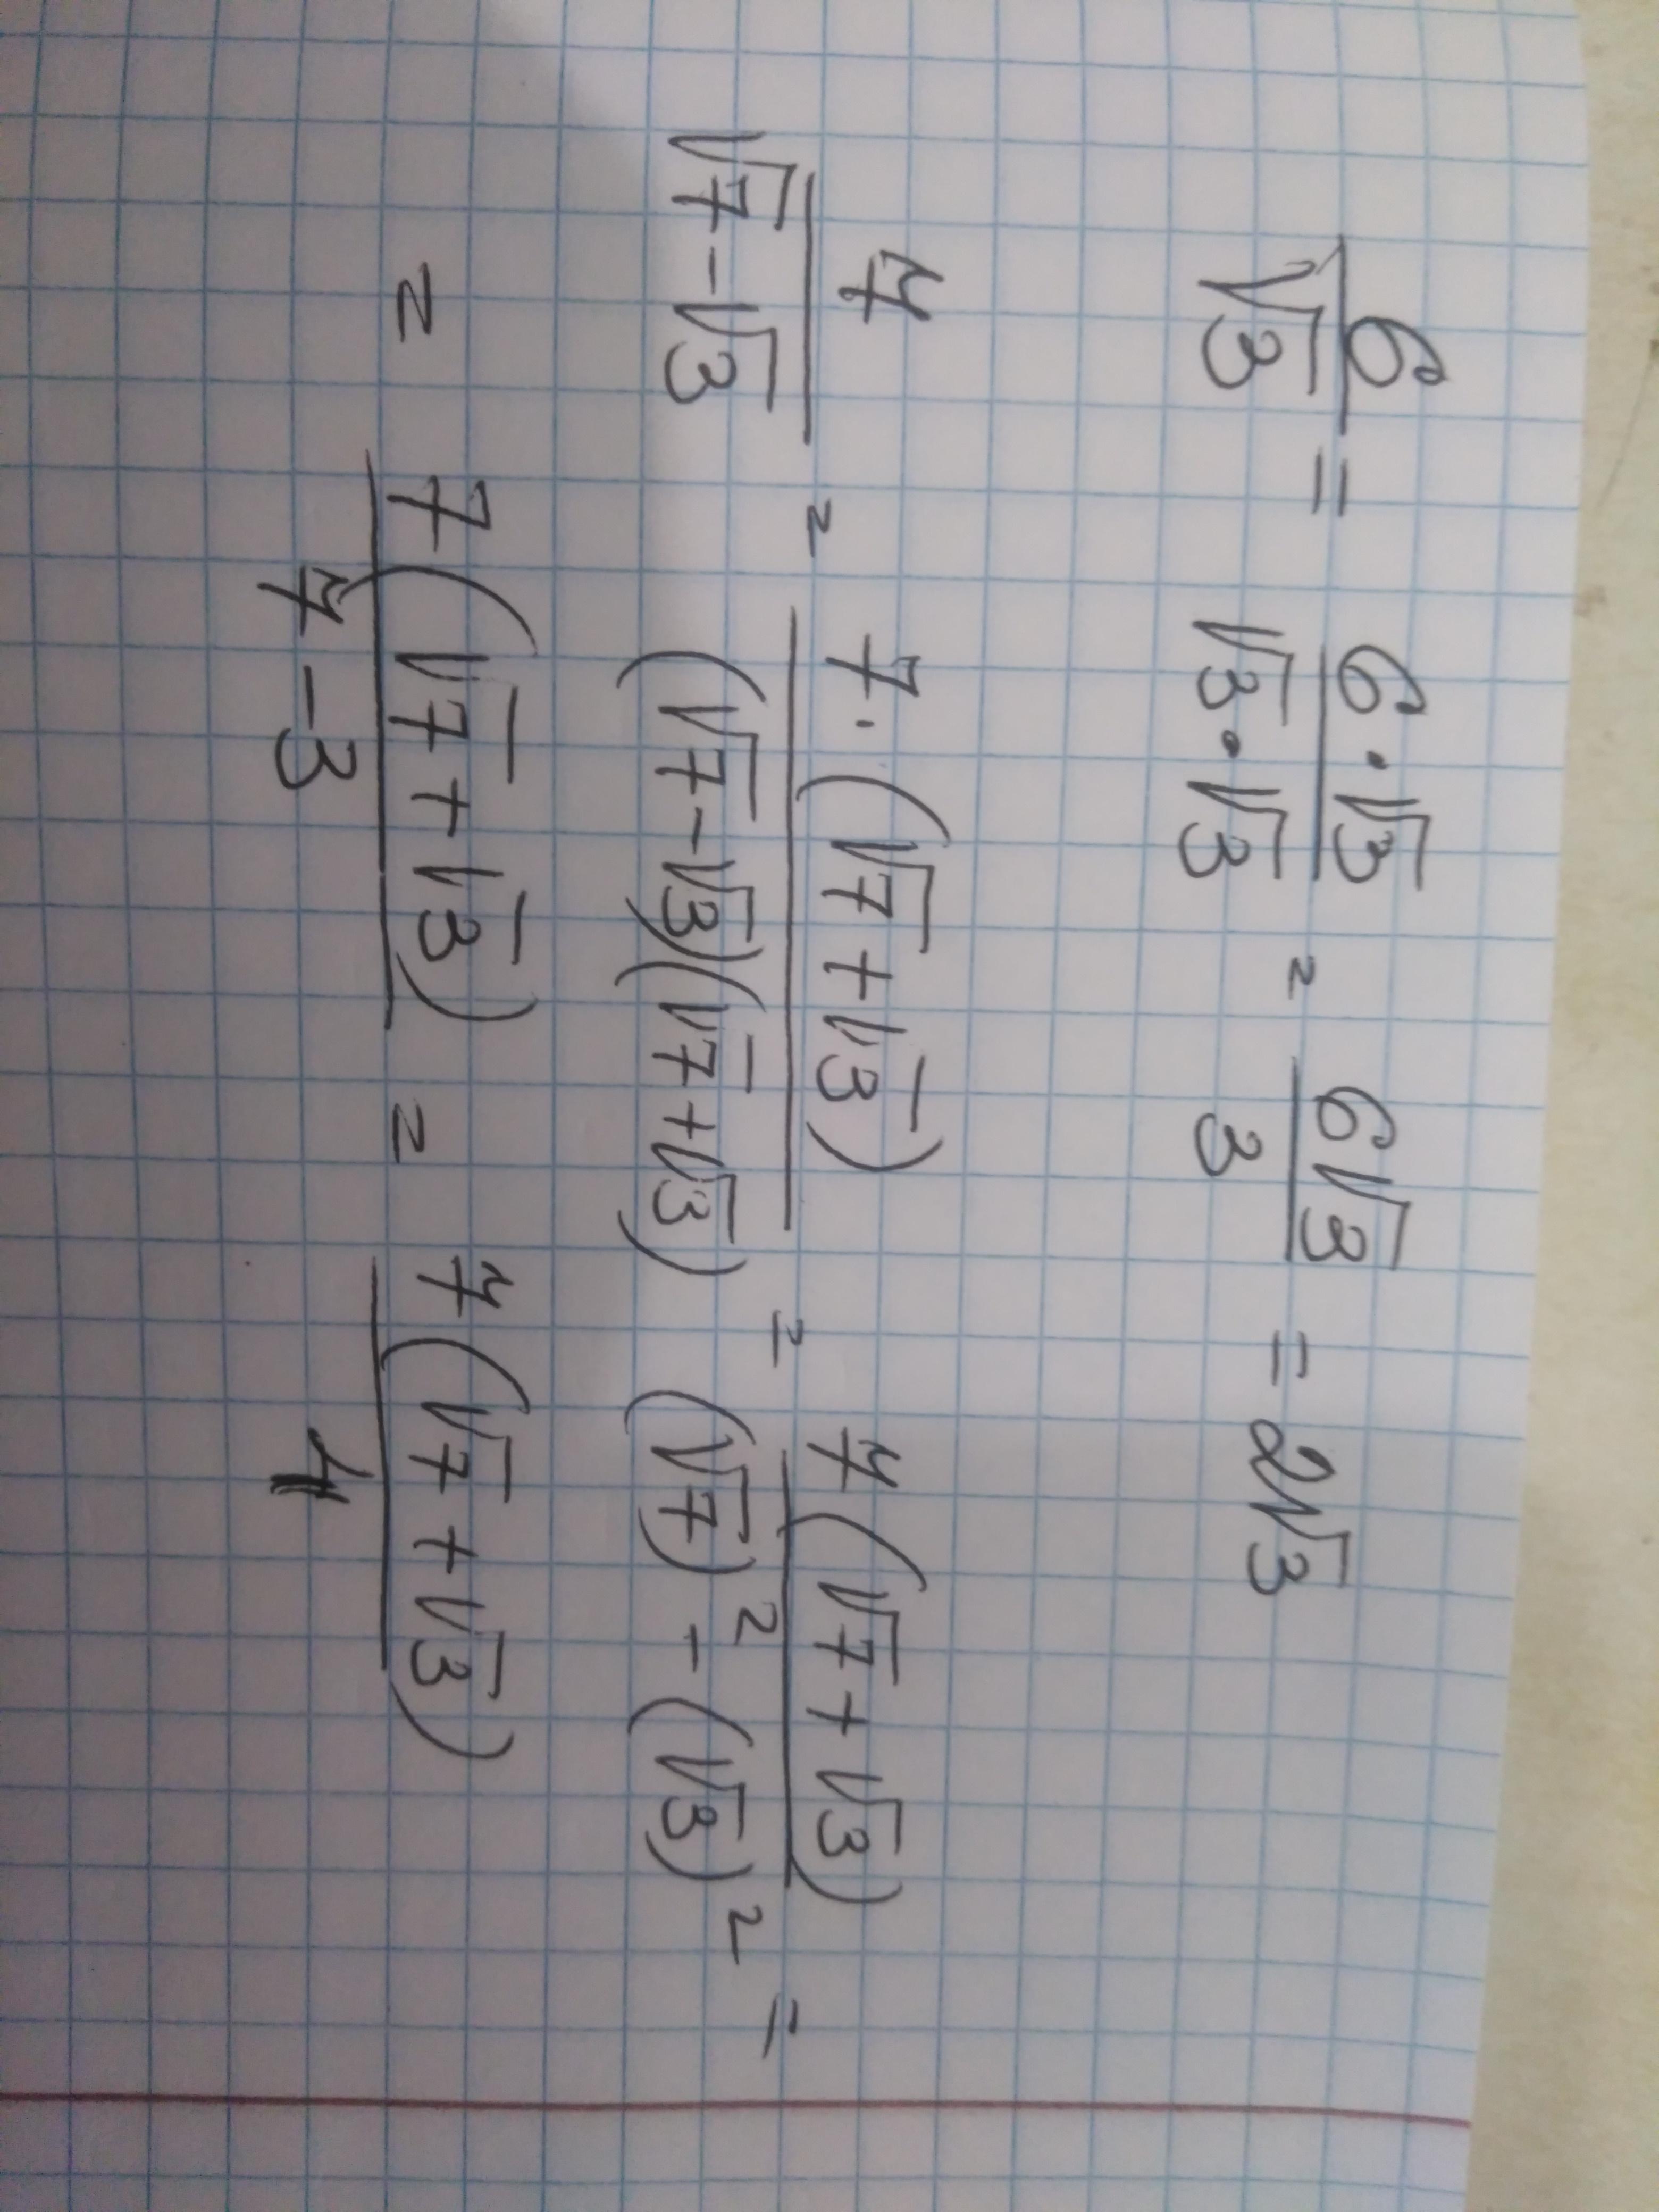 6/√3 = (6·√3)/(√3·√3) = 6√3/3 = 2√3
7/(√7-√3) = 7·(√7+√3)/((√7-√3)(√7+√3)) = 7(√7+√3)/((√7)²-(√3)²) =
= 7(√7+√3)/(7-3) = 7(√7+√3)/4